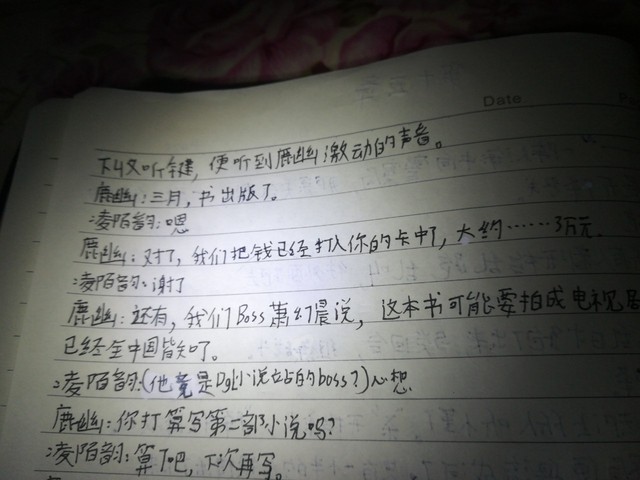 Date
下收听键，便听到鹿幽激动的声音。
鹿幽：三月，书出版了。
凌陌韵：嗯
鹿幽：对了，我们把钱已经打入你的卡中了，大约……3万元。
凌陌韵：谢了
鹿幽：还有，我们Boss萧幻晨说，这本书可能要拍成电视剧
已经全中国皆知了。
凌陌韵：(他竟是Dgl小说站的boss？)心想
鹿幽：你打算写第二部小说吗？
凌陌韵：算了吧，下次再写。